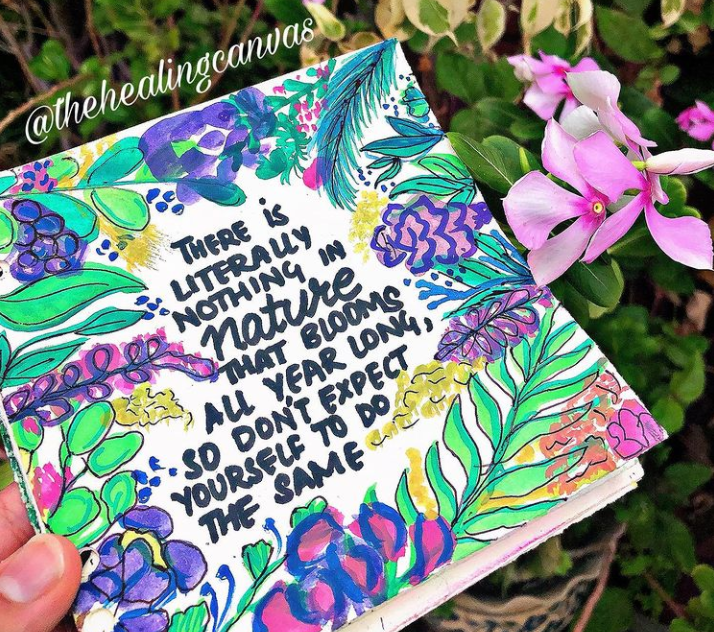 @thehealingcanvas
THERE IS
LITERALLY
NOTHING IN
nature
THAT BLOOMS
ALL YEAR LONG,
SO DON'T EXPECT
YOURSELF TO DO
THE SAME